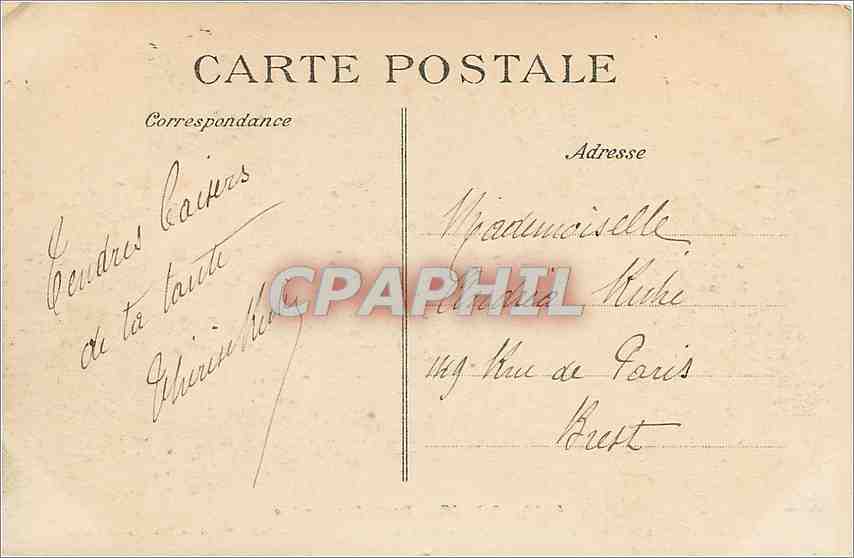 CARTE POSTALE
Correspondance
Tendres baisers
de ta tante
Adresse
Mademoiselle
Rue de Paris
Brest
CPAPHIL